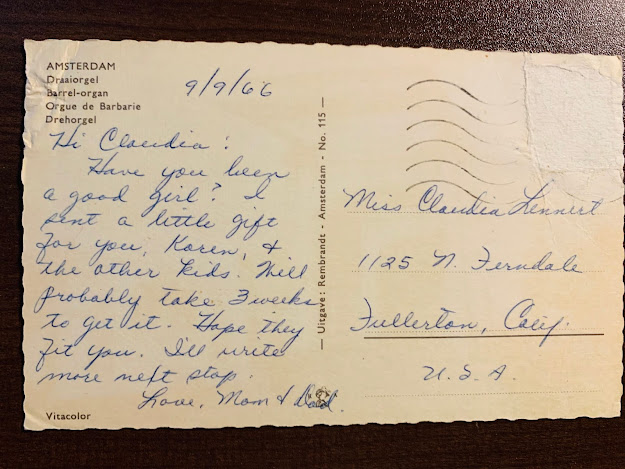 AMSTERDAM
Draaiorgel
Barrel-organ
Orgue de Barbarie
Drehorgel
9/9/66
Hi Claudia:
Have you been
a good girl? I
sent a little gift
for you, Karen, &
the other kids. Will
probably take 3 weeks
to get it. Hope they
fit you. I'll write
more next stop.
Love, Mom & Dad.
Vitacolor
— Uitgave: Rembrandt - Amsterdam - No. 115 —
Miss Claudia Lennert
1125 N. Ferndale
Fullerton, Calif.
U.S.A.